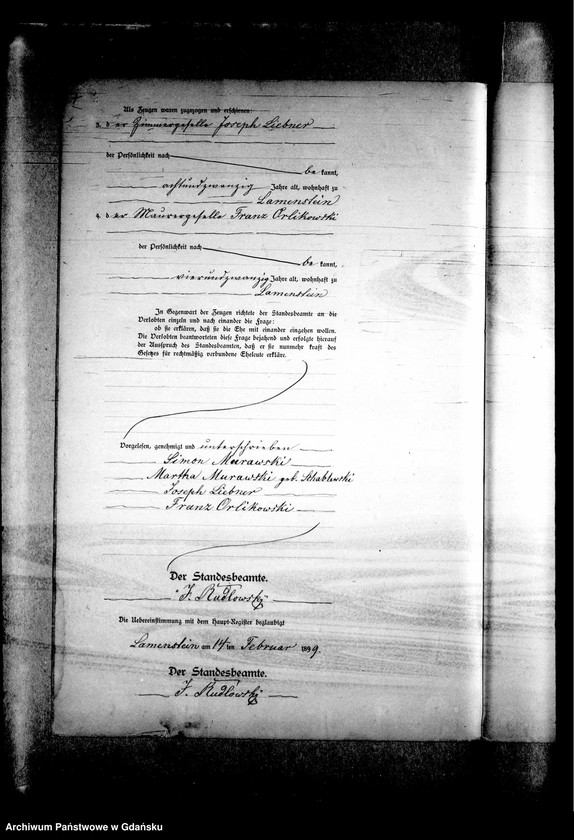 Als Zeugen waren zugezogen und erschienen:
3. der Zimmergeselle Joseph Liebner
der Persönlichkeit nach
bekannt,
achtundzwanzig Jahre alt, wohnhaft zu
Lamenstein
4. der Maurergeselle Franz Orlikowski
der Persönlichkeit nach
bekannt,
vierundzwanzig Jahre alt, wohnhaft zu
Lamenstein
In Gegenwart der Zeugen richtete der Standesbeamte an die
Verlobten einzeln und nach einander die Frage:
ob sie erklären, daß sie die Ehe mit einander eingehen wollen.
Die Verlobten beantworteten diese Frage bejahend und erfolgte hierauf
der Ausspruch des Standesbeamten, daß er sie nunmehr kraft des
Gesetzes für rechtmäßig verbundene Eheleute erkläre.
Vorgelesen, genehmigt und unterschrieben
Simon Murawski
Martha Murawski geb. Schablewski
Joseph Liebner
Franz Orlikowski
Der Standesbeamte.
J. Rudlowski
Die Uebereinstimmung mit dem Haupt-Register beglaubigt
Lamenstein am 14 ten Februar 1899.
Der Standesbeamte.
J. Rudlowski
Archiwum Państwowe w Gdańsku